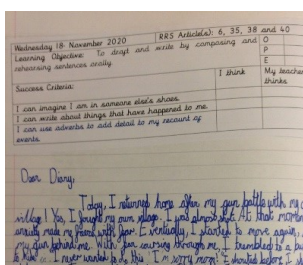 Wednesday 18. November 2020
RRS Article(s): 6, 35, 38 and 40
Learning Objective: To draft and write by composing and rehearsing sentences orally.
O
P
E
Success Criteria:
I think
My teacher thinks
I can imagine I am in someone else's shoes.
I can write about things that have happened to me.
I can use adverbs to add detail to my recount of events.
Dear Diary,
Today, I returned home after my gun battle with my
village! Yes, I fought my own village. I was almost shot. At that moment
anxiety made me friend with fear. Eventually, I started to move again,
my gun behind me. With fear coursing through me, I trembled to a
I never wanted to do this. "I'm sorry mom!" I shouted before I